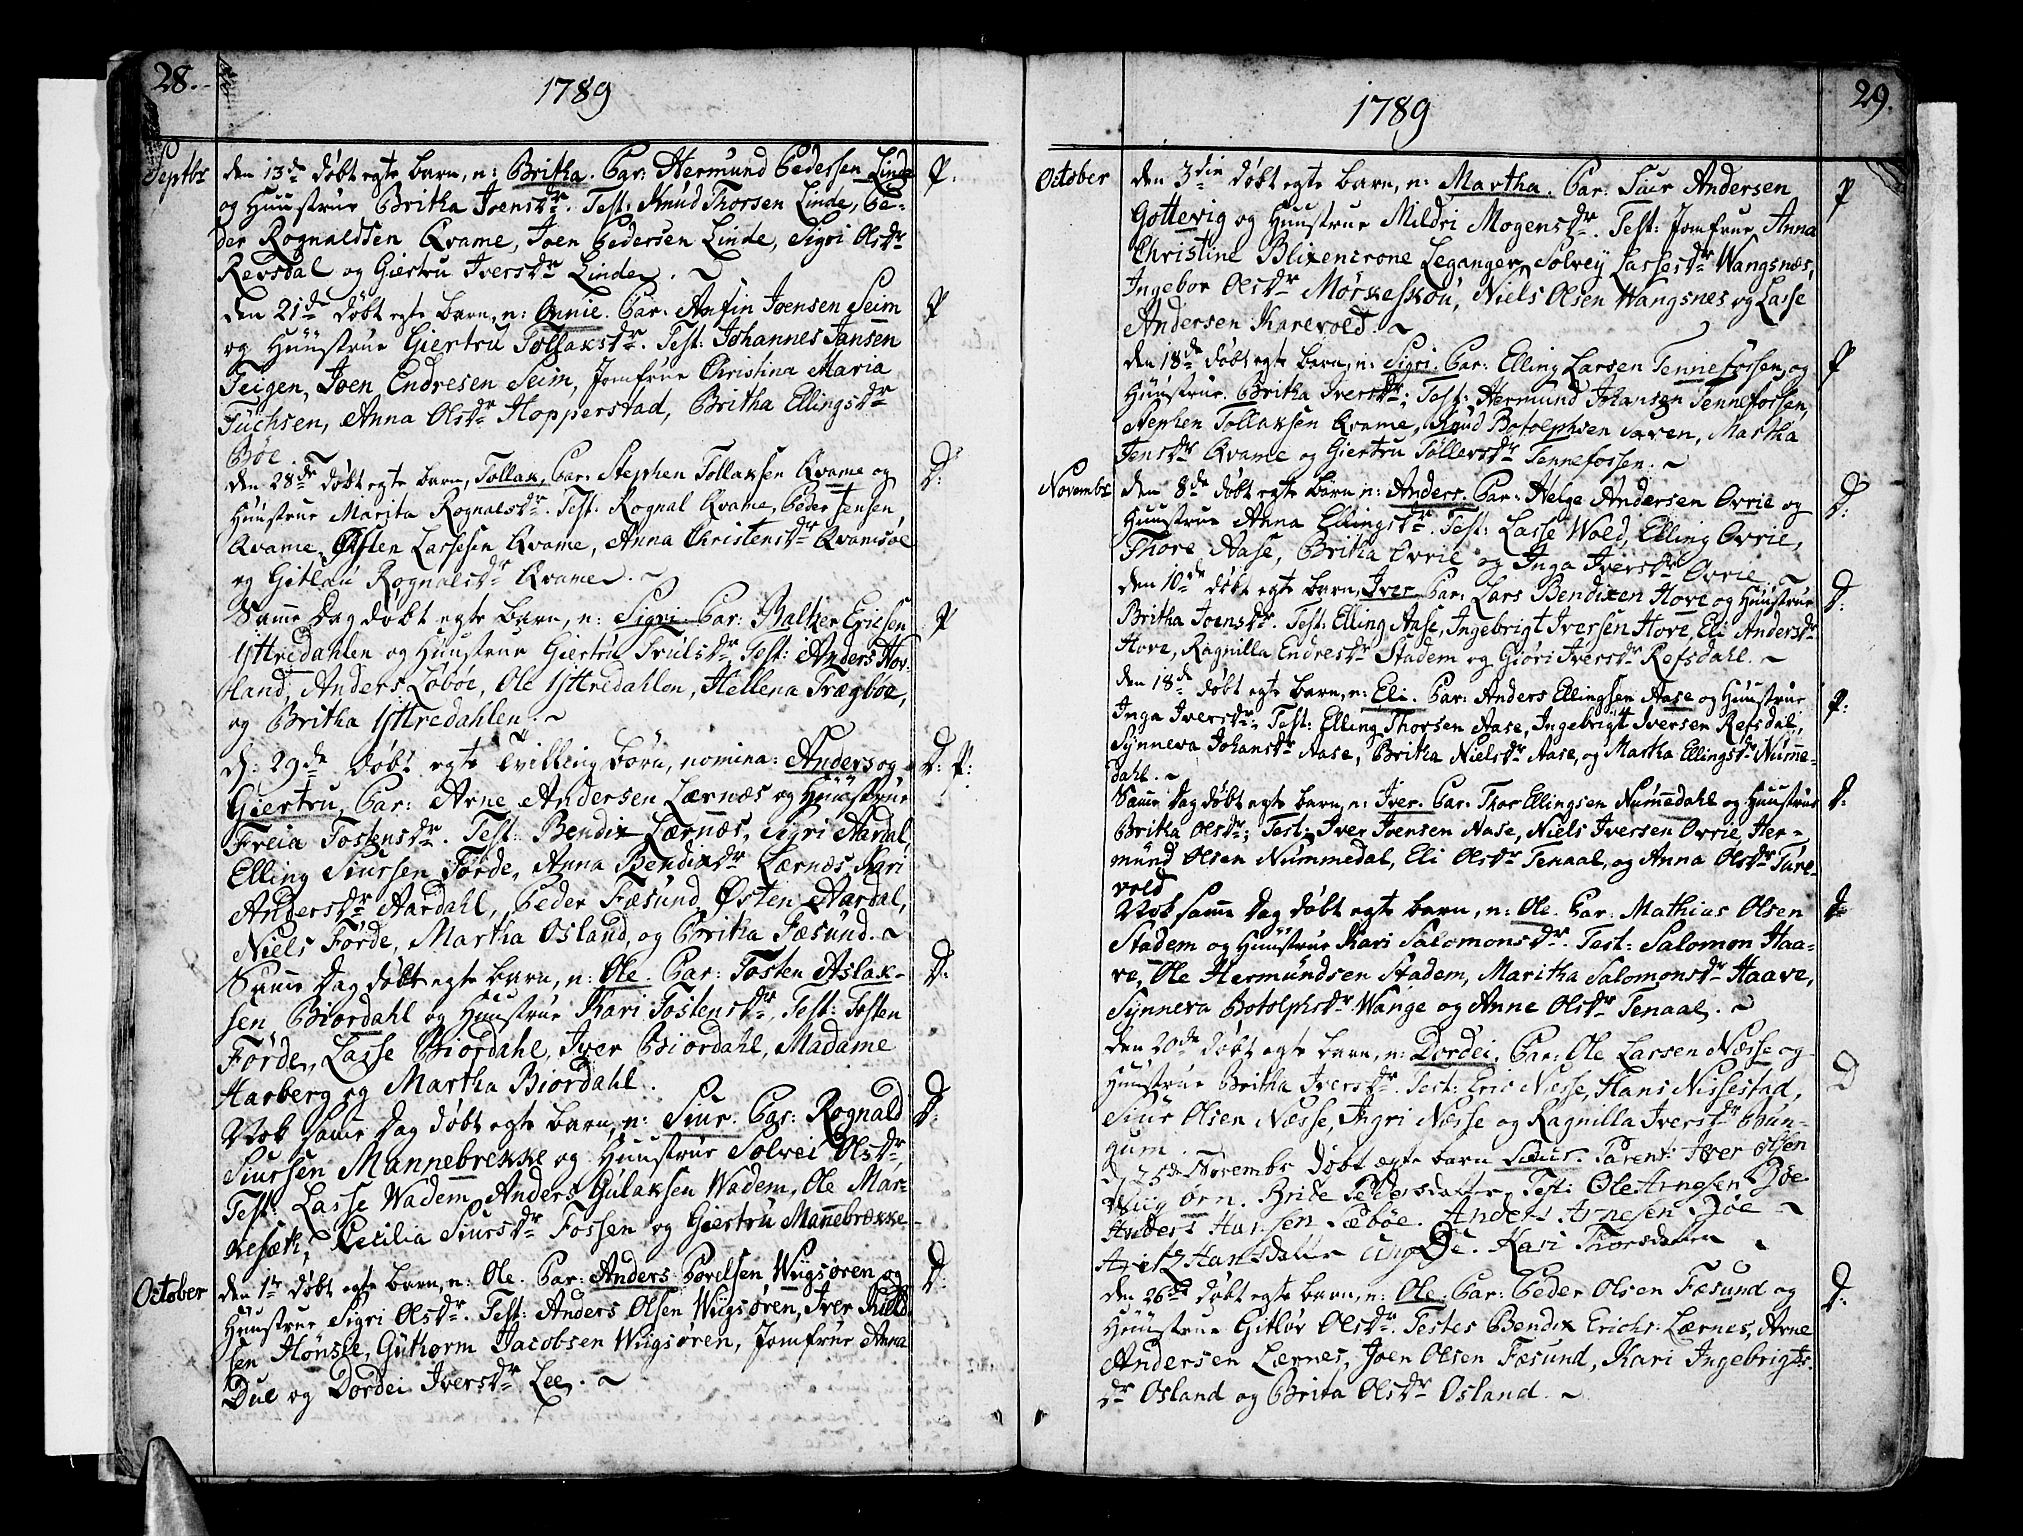 28.
1789
Septbr
den 13de døbt egte barn, n: Britha. Par: Hermund Pedersen Linde
P.
og Huustrue Britha Joensdr. Test: Knud Thorsen Linde, Pe-
der Rognaldsen Kvame, Joen Pedersen Linde, Sigri Olsdr
Revsdal og Giertru Iversdr Linde. ~
den 21de døbt egte barn, n: Onnie. Par: Anfin Joensen Seim
P
og Huustrue Giertru Tollaksdr. Test: Johannes Jansen
Teigen, Joen Endresen Seim, Jomfrue Christina Maria
Fuchsen, Anna Olsdr Hopperstad, Britha Ellingsdr
Bøe. ~
den 28de døbt egte barn, Tollak, Par: Stephen Tollaksen Kvame og
D:
Huustrue Marita Rognalsdr. Test: Rognal Kvame, Peder Jensen
Kvame, Østen Lassesen Kvame, Anna Christensdr Kvamsøe
og Gitlau Rognalsdr Kvame. ~
Samme Dag døbt egte barn, n: Sigri Par: Baltzer Ericsen
P
Yttredahlen og Huustrue Giertru Trulsdr Test: Anders Hov-
land, Anders Løbøe, Ole Yttredahlen, Hellena Trægbøe,
og Britha Yttredahlen. ~
d: 29de døbt egte Tvilling børn, nomina: Anders og
D: P:
Giertru, Par: Arne Andersen Lærnæs og Huustrue
Freia Tostensdr. Test: Bendix Lærnæs, Sigri Aardal,
Elling Siursen Førde, Anna Bendixdr Lærnæs, Kari
Andersdr Aardahl, Peder Fæsund, Østen Aardal,
Niels Førde, Martha Osland, og Britha Fæsund. ~
Samme Dag døbt egte barn, n: Ole. Par: Tosten Aslak-
D:
sen Biordahl og Huustrue Kari Tostensdr, Test: Tosten
Førde, Lasse Biordahl, Iver Biordahl, Madame
Harberg og Martha Biordahl.
Nok samme Dag døbt egte barn, n: Siur. Par: Rognald
D:
Siursen Mannebrekke og Huustrue Solvei Olsdr,
Test: Lasse Wadem, Anders Gulaksen Wadem, Ole Mar-
kesæth, Cecilia Siursdr Fossen og Giertru Mannebrække.
October
den 1te døbt egte barn, n: Ole. Par: Anders Povelsen Wiigsøren og
D:
Huustrue Sigri Olsdr. Test: Anders Olsen Wiigsøren, Iver
sen Hønsle, Guthorm Jacobsen Wiigsøren, Jomfrue Anna
Due og Dordei Iversdr Lee. ~
29.
1789
October
den 3die døbt egte barn, n: Martha. Par: Siur Andersen
P
Gottevig og Huustrue Mildri Mogensdr. Test: Jomfrue Anna
Christine Blixencrone Leganger, Solvey Lassesdr Wangsnæs,
Ingebor Olsdr Mørkeskou, Niels Olsen Wangsnes og Lasse
Andersen Karevold. ~
den 18de døbt egte barn, n: Sigri. Par: Elling Larsen Tennefossen, og
P
Huustrue Britha Iversdr; Test: Hermund Johansen Tennefossen,
Stephen Tollaksen Kvame, Knud Botolphsen Maren, Martha
Jensdr Kvame og Giertru Tollevsdr Tennefossen. ~
Novembr
den 8de døbt egte barn, n: Anders. Par: Helge Andersen Ovrie og
D:
Huustrue Anna Ellingsdr. Test: Lasse Wold, Elling Ovrie,
Thore Aase, Britha Ovrie og Inga Iversdr Ovrie. ~
den 10de døbt egte barn, Iver, Par: Lars Bendixen Hove og Huustrue
D:
Britha Joensdr. Test: Elling Aase, Ingebrigt Iversen Hove, Eli Andersdr
Hove, Ragnilla Endresdr Stadem og Giøri Iversdr Refsdahl. ~
den 18de døbt egte barn, n: Eli. Par: Anders Ellingsen Aase og Huustrue
P:
Inga Iversdr; Test: Elling Thorsen Aase, Ingebrigt Iversen Refsdal,
Synneva Johansdr Aase, Britha Nielsdr Aase, og Martha Ellingsdr Numme-
dahl. ~
Samme Dag døbt egte barn, n: Iver. Par: Thor Ellingsen Nummedahl og Huustrue
D:
Britha Olsdr; Test: Iver Joensen Aase, Niels Iversen Ovrie, Her-
mund Olsen Nummedal, Eli Olsdr Tenaal, og Anna Olsdr Ture-
vold
Nok samme Dag døbt egte barn, n: Ole. Par: Mathias Olsen
D:
Stadem og Huustrue Kari Salomonsdr. Test: Salomon Haa-
ve, Ole Hermundsen Stadem, Maritha Salomonsdr Haave,
Synneva Botolphsdr Wange og Anne Olsdr Tenaal. ~
den 20de døbt egte barn, n: Dordei, Par: Ole Larsen Næsse og
D
Huustrue Britha Iversdr. Test: Eric Næsse, Hans Nissestad,
Siur Olsen Næsse, Ingri Næsse og Ragnilla Iversdr Houn-
gum.
d, 25de Novembr døbt ægte barn Siur. Parent: Iver Olsen
Wiig Ørn. Bride Pedersdatter. Test: Ole Arnesen Bøe
Hansen Sæbøe. Anders Arnesen Bøe ~
Hansdatter Kari Thorsdatter ~
den 26de døbt egte barn, n: Ole: Par: Peder Olsen Fæsund og
D:
Huustrue Gitløv Olsdr. Testes Bendix Erichs: Lærnes, Arne
Andersen Lærnes, Joen Olsen Fæsund, Kari Ingebrigts
dr Osland og Brita Olsdr Osland. ~